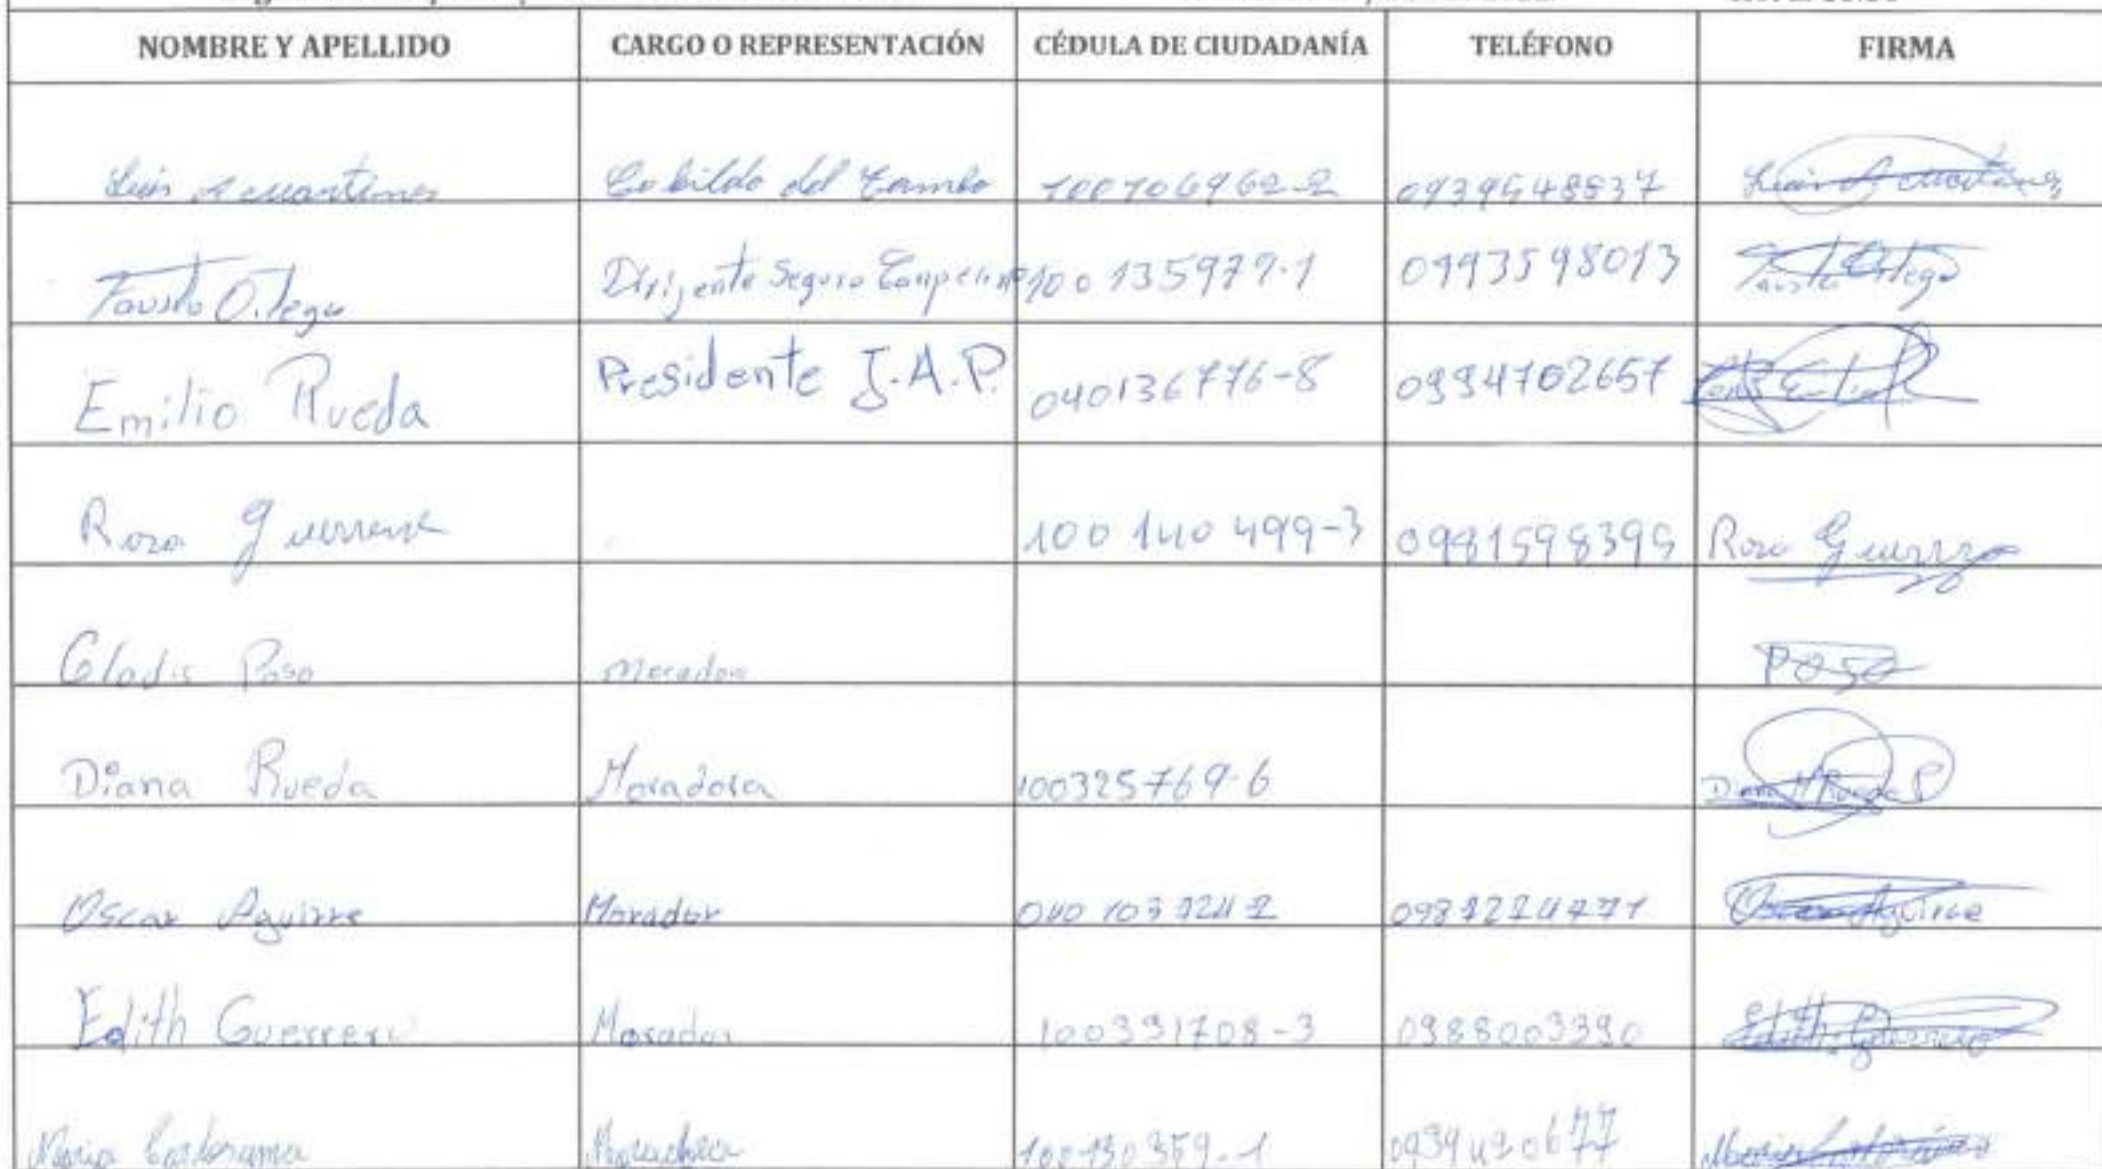 NOMBRE Y APELLIDO CARGO O REPRESENTACIÓN CÉDULA DE CIUDADANÍA TELÉFONO FIRMA
Luis A Cobildo del Tambo 100106962-2 Luis A
Fausto Ortega Dirigente Seguro Campesino 100 135979-1 0993598013 Fausto Ortega
Emilio Rueda Presidente J.A.P. 040136776-8 0994702657
Rosa Guerrero 100 140 499-3 Rosa Guerrero
Gladis Poso Moradora POSO
Diana Rueda Moradora 100325769-6 Diana Rueda P
Oscar Aguirre Morador Oscar Aguirre
Edith Guerrero Morador 100391708-3 0988003390 Edith Guerrero
Maria Moradora 100130359-1 0939420677 Maria